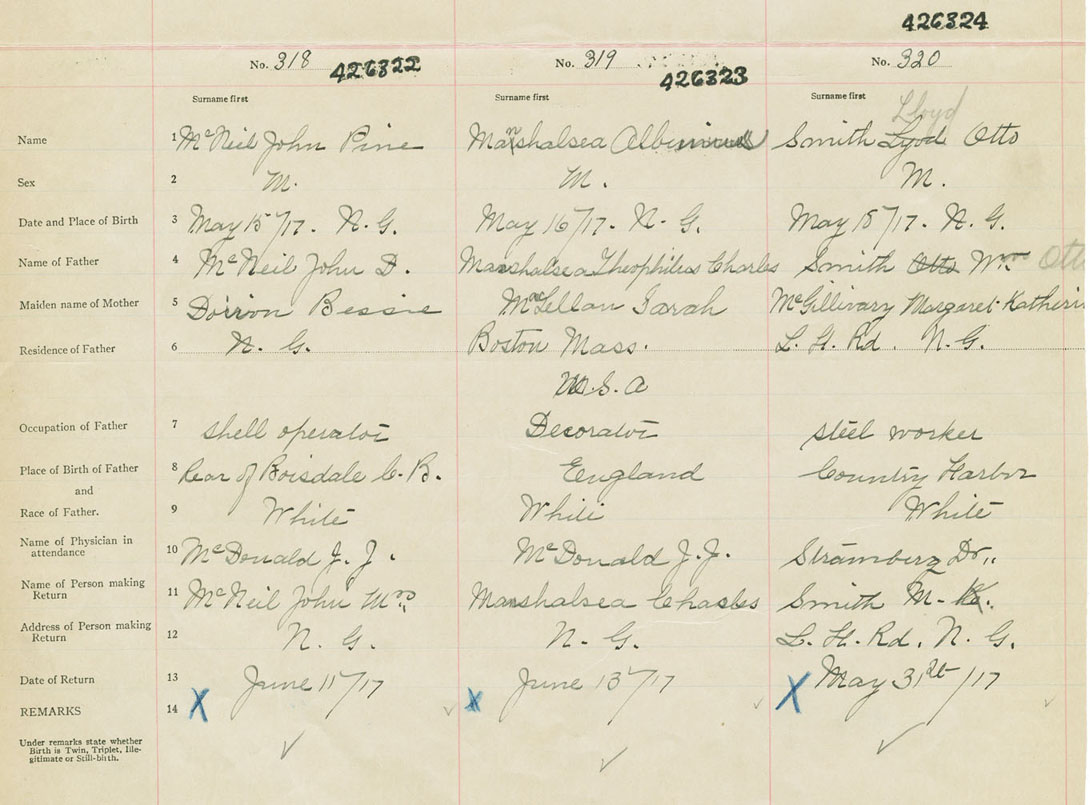 426324
No. 318 426322 No. 319 426323 No. 320
Surname first Surname first Surname first
Lloyd
Name 1 McNeil John Pine Marshalsea Smith Lyod Otto
Sex 2 M. M. M.
Date and Place of Birth 3 May 15/17. N. G. May 16/17. N. G. May 15/17. N. G.
Name of Father 4 McNeil John D. Marshalsea Theophilus Charles Smith Otto Wm Otto
Maiden name of Mother 5 Doirron Bessie McLellan Sarah McGillivary Margaret Katherin
Residence of Father 6 N. G. Boston Mass. L. H. Rd. N. G.
U.S.A
Occupation of Father 7 shell operator Decorator steel worker
Place of Birth of Father 8 Rear of Boisdale C. B. England Country Harbor
and
Race of Father. 9 White White White
Name of Physician in
attendance 10 McDonald J. J. McDonald J. J. Stramberg Dr.
Name of Person making
Return 11 McNeil John Mrs Marshalsea Charles Smith M. K.
Address of Person making
Return 12 N. G. N. G. L. H. Rd. N. G.
Date of Return 13 June 11/17 June 13/17 May 31st/17
REMARKS 14 X X X
Under remarks state whether
Birth is Twin, Triplet, Ille-
gitimate or Still-birth.